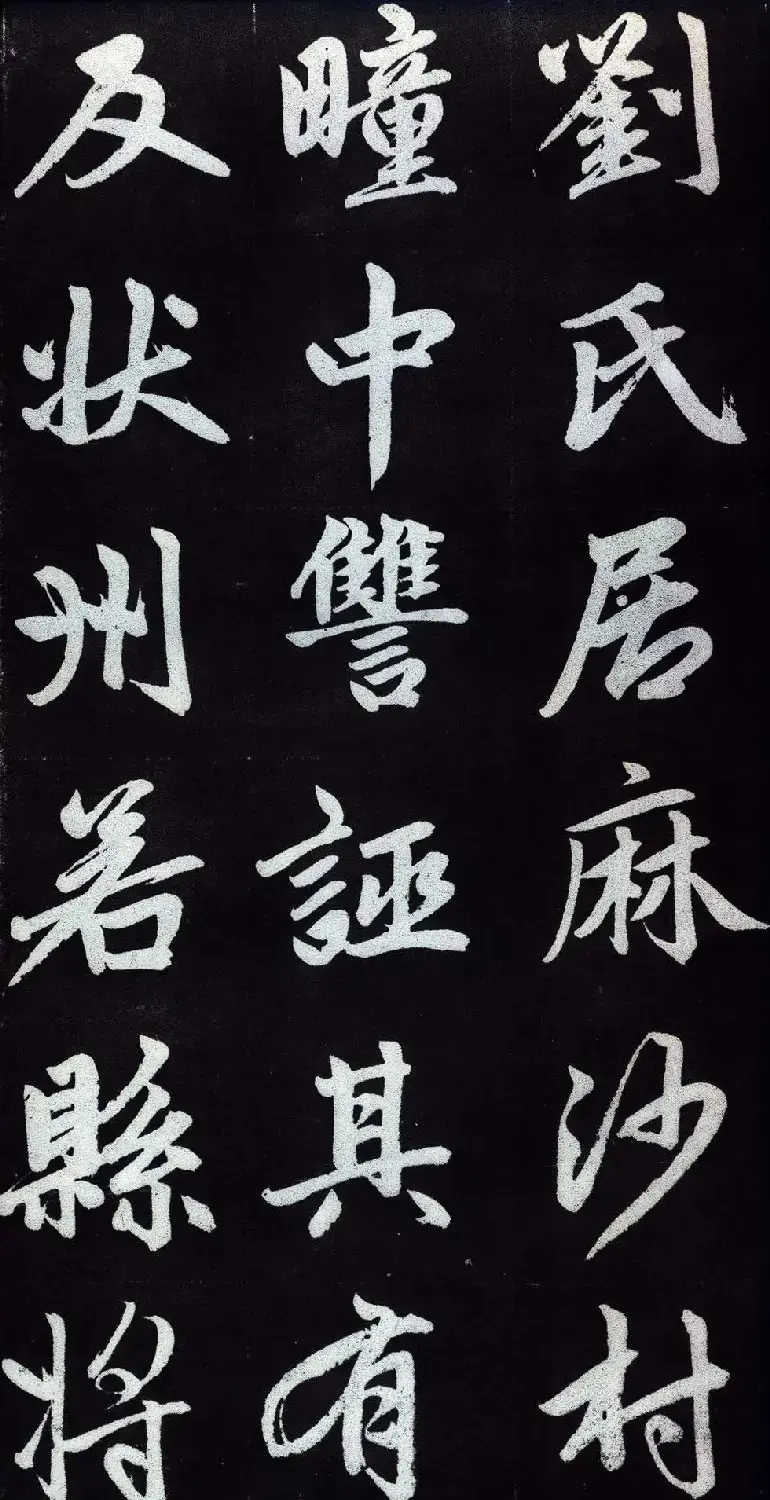 劉氏居麻沙村
疃中讐誣其有
反狀州若縣將